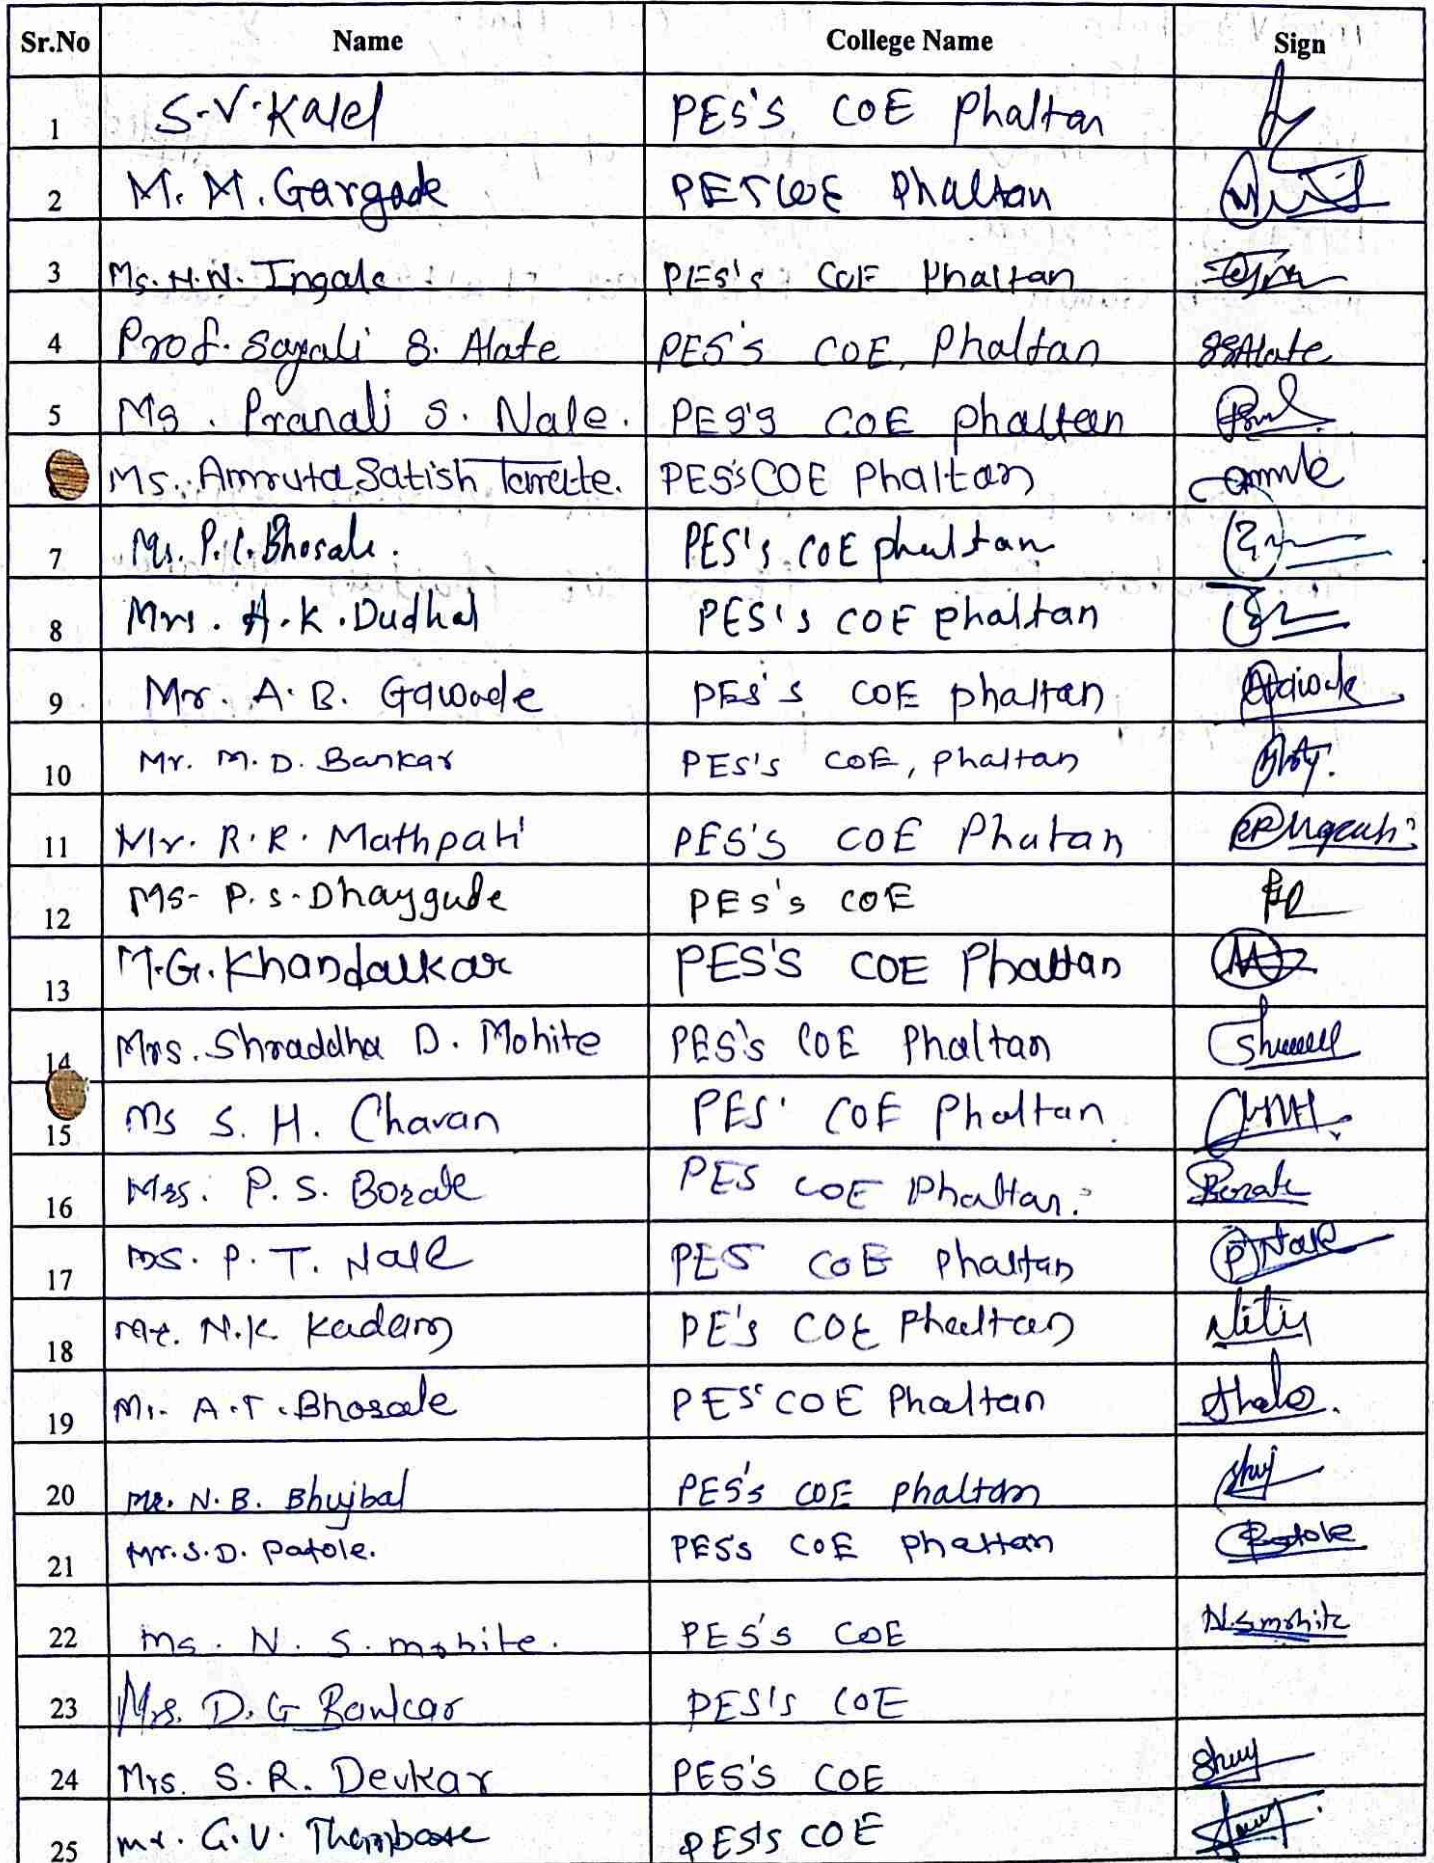 Sr.No Name College Name Sign
1 S.V.Kalel PES'S COE Phaltan
2 M. M. Gargade PES COE Phaltan
3 Ms. N.N. Ingale PES's COE Phaltan
4 Prof. Sayali S. Alate PES's COE, Phaltan SSAlate
5 Ms. Pranali S. Nale. PES's COE phaltan
Ms. Amruta Satish PES's COE Phaltan
7 Ms. Bhosale. PES's COE phaltan
8 Mrs. H.K.Dudhal PES's COE phaltan
9 Mr. A.B. Gawade PES's COE phaltan
10 Mr. M.D. Bankar PES's COE, phaltan
11 Mr. R.R. Mathpati PES's COE Phaltan
12 Ms- P.S-Dhaygude PES's COE
13 M.G.Khandalkar PES'S COE Phaltan
14 Mrs. Shraddha D. Mohite PES's COE Phaltan
15 Ms S. H. Chavan PES' COE Phaltan
16 Mrs. P. S. Borate PES COE Phaltan. Borate
17 Ms. P. T. Nale PES COE phaltan P Nale
18 Mr. N.K. Kadam PE's COE Phaltan
19 Mr. A.T. Bhosale PES' COE Phaltan
20 Mr. N.B. Bhujbal PES's COE phaltan
21 Mr.S.D. Patole. PESs COE phaltan Patole
22 Ms. N. S. mohite. PES's COE N.S mohite
23 Mrs. D.G Bankar PES's COE
24 Mrs. S.R. Devkar PES'S COE
25 mr. G.V. PES's COE